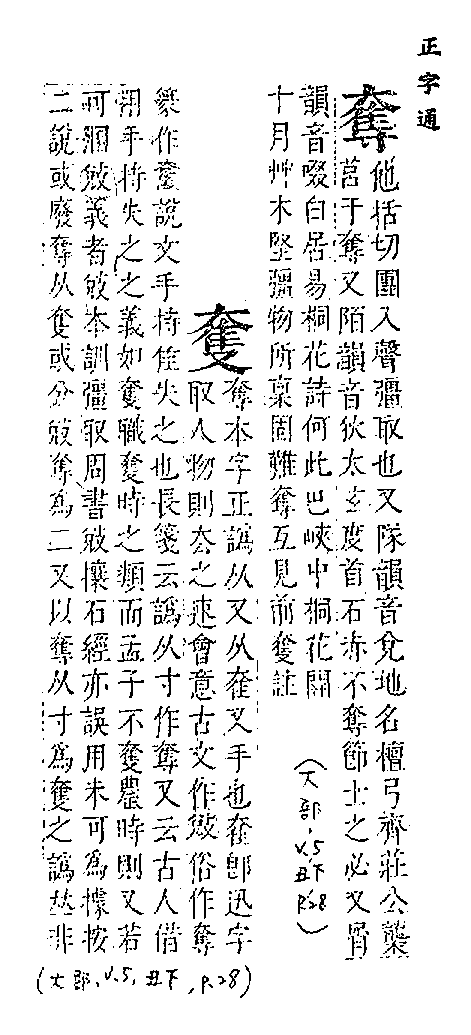 正字通
奪他括切團入聲彊取也又隊韻音兌地名檀弓齊莊公襲
莒于奪又陌韻音狄太玄度首石赤不奪節士之必又屑
韻音啜白居易桐花詩何此巴峽中桐花開
十月艸木堅彊物所稟固難奪互見前奞註
(大部,V.5,丑下,P.28)
奪本字正譌从又从奞又手也奞卽迅字
取人物則奞之速會意古文作敓俗作奪
篆作奪說文手持隹失之也長箋云譌从寸作奪又云古人借
用手持失之之義如奪職奪時之類而孟子不奪農時則又若
可溷敓義者敓本訓彊取周書敓攘石經亦誤用未可爲據按
二說或廢奪从奪或分敓奪爲二又以奪从寸爲奪之譌丛非
(大部,V.5,丑下,P.28)